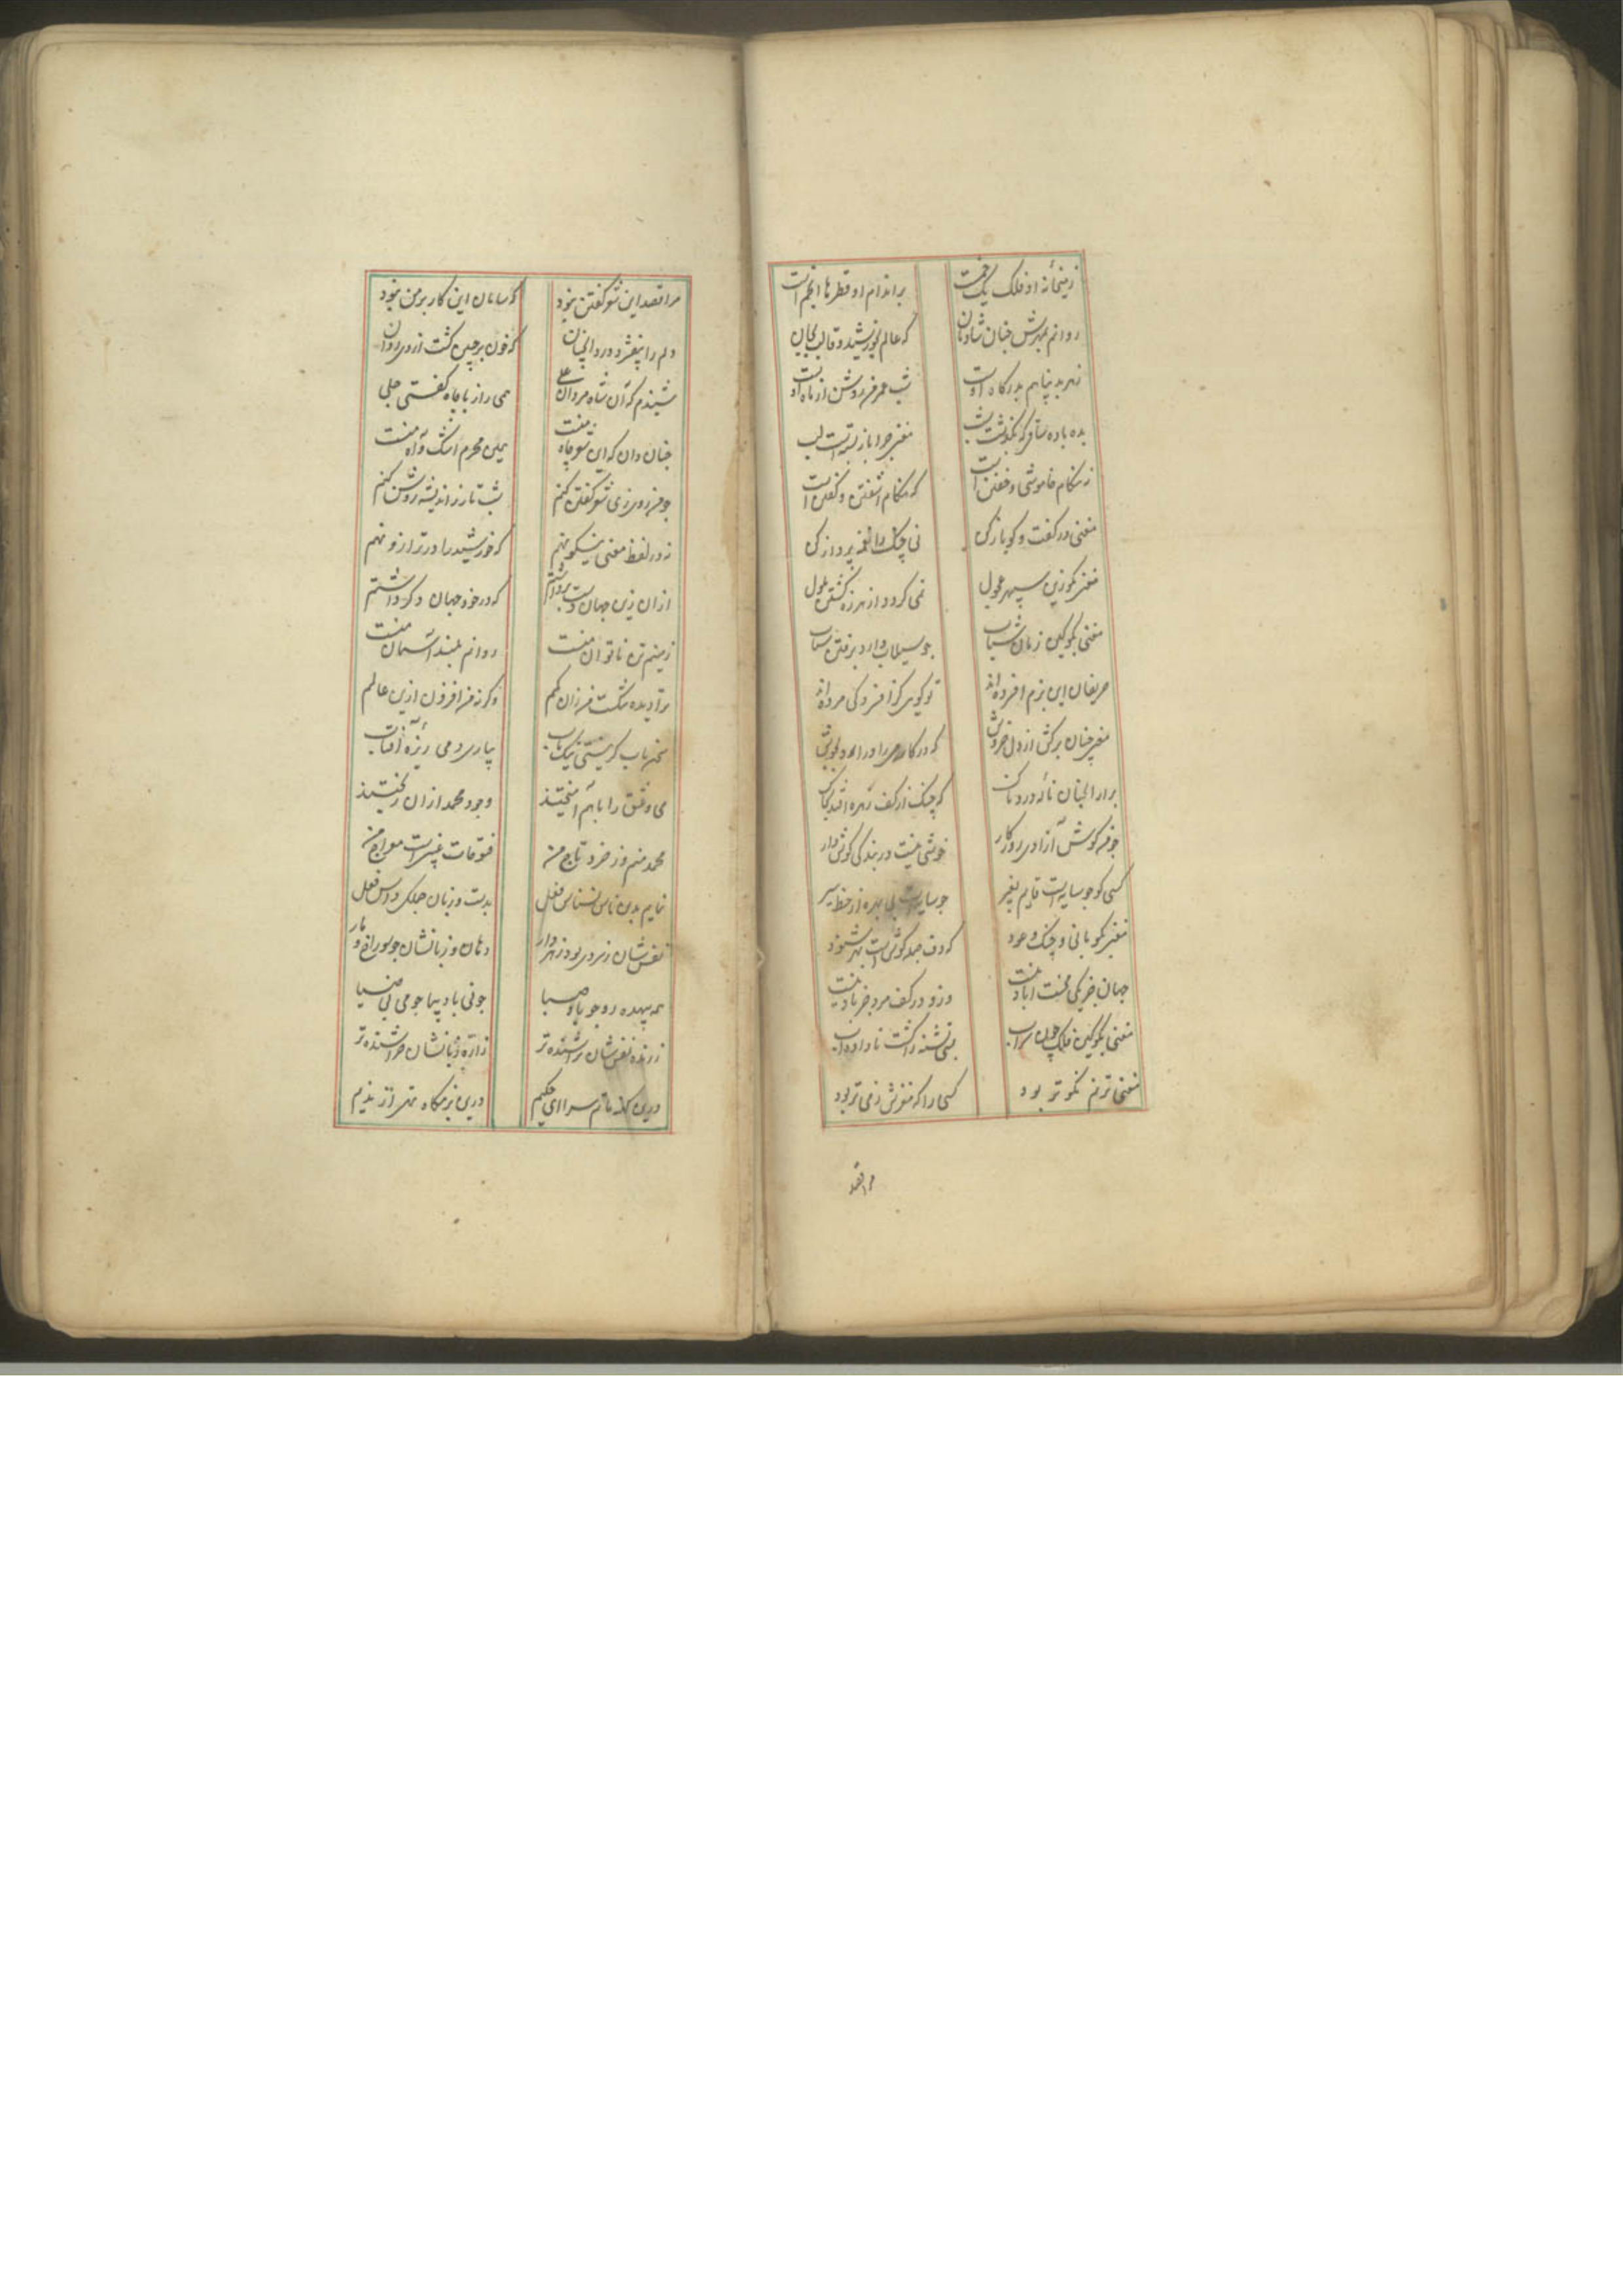 زمیخانه او فلک یک خمست
بر اندام او قطرها انجم است
روانم بمهرش چنان شادمان
که عالم بخورشید و قالب بجان
زهر بد پناهم بدرکاه اوست
شب عمر من روشن از ماه اوست
بده باده ساقی که بگذشت شب
مغنی چرا باز بستست لب
نه هنکام خاموشی و خفتن است
که هنکام آشفتن و گفتن است
مغنی در گفت و کو باز کن
نی و چنگ را نغمه پرداز کن
مغنی بگو زین سپهر عجول
نمی کردد از هرزه گشتن ملول
مغنی بگو کین زمان شباب
چو سیماب دارد برفتن شتاب
حریفان این بزم افسرده اند
تو کویی کز افسردگی مرده اند
مغنی چنان برکش از دل خروش
که در کار می را در آرد بجوش
برآر آنچنان ناله دردناک
که چنگ از کف زهره افتد بخاک
چو من کوش آزادی روزکار
خوشی نیست در بندگی کوش دار
کسی کو چو سایه است قایم بغیر
چو سایه است بی بهره از حظ سیر
مغنی بگو با نی و چنگ و عود
که دف جمله کوش است بهر شنود
جهان جز یکی محنت آباد نیست
درو در کف مرد جز باد نیست
مغنی بگو کین فلک چون سراب
بسی تشنه را کشت ناداده آب
مغنی ترنم نکوتر بود
کسی را که مغزش ز می تر بود
مرا قصد
مرا قصد این شعر گفتن نبود
که سامان این کار بر من نبود
دلم را بیفشرد درد آنچنان
که خون بر جبین گشت از وی روان
شنیدم که آن شاه مردان علی
همی راز با چاه گفتی جلی
چنان دان که این شعر چاه منست
همین محرم اشک و آه منست
چو من روی زی شعر گفتن کنم
شب تار ز اندیشه روشن کنم
نه در لفظ معنی نیکو نهم
که خورشید را در ترازو نهم
از آن زین جهان دست برداشتم
که در خود جهان دگر داشتم
زمینم تن ناتوان منست
روانم بلند آسمان منست
ترا دیده تنگست من زان کمم
وگرنه من افزون ازین عالمم
سخن یاب کر نیستی نیک یاب
بیا در دمی ریزه آفتاب
می و عشق را با هم آمیختند
وجود محمد از آن ریختند
محمد منم وز خرد تاج من
فتوحات غیبست معراج من
نمایم بدین ناس نسناس فعل
بدست و زبان
نفس شان ز سردی بود زهردار
دهان و زبانشان چو سوراخ و مار
همه بیهده رو چو باد صبا
چو نی بادپیما چو می بی ضیا
ز رنده نفس شان تراشنده تر
ز اره زبانشان خراشنده تر
درین کهنه ماتم سرا ای حکیم
درین بزمگاه تهی از ندیم